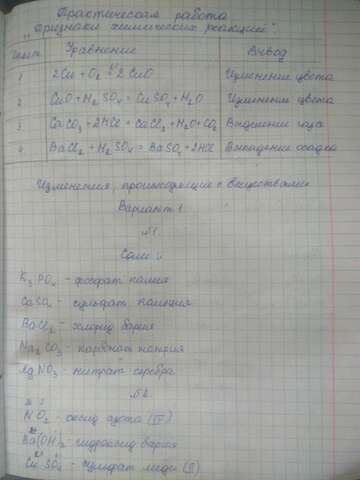 Практическая работа
"Признаки химических реакций"
Уравнение Вывод
1 2Cu + O₂ = 2CuO Изменение цвета
2 CuO + H₂SO₄ = CuSO₄ + H₂O Изменение цвета
3 CaCO₃ + 2HCl = CaCl₂ + H₂O + CO₂ Выделение газа
4 BaCl₂ + H₂SO₄ = BaSO₄ + 2HCl Выпадение осадка
Изменения, происходящие с веществами
Вариант 1.
№1.
Соли:
K₃PO₄ - фосфат калия
CaSO₄ - сульфат кальция
BaCl₂ - хлорид бария
Na₂CO₃ - карбонат натрия
AgNO₃ - нитрат серебра
№2
NO₂ - оксид азота (IV)
Ba(OH)₂ - гидроксид бария
CuSO₄ - сульфат меди (II)